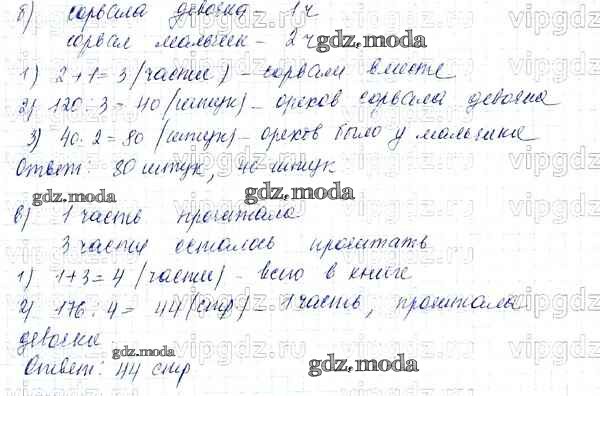 б) сорвала девочка - 1 ч
сорвал мальчик - 2 ч
1) 2+1=3 (части) - сорвали вместе
2) 120 : 3 = 40 (штук) - орехов сорвала девочка
3) 40 · 2 = 80 (штук) - орехов было у мальчика
Ответ: 80 штук, 40 штук
в) 1 часть прочитала
3 части осталось прочитать
1) 1+3=4 (части) - всего в книге
2) 176 : 4 = 44 (стр) - 1 часть, прочитала
девочка
Ответ: 44 стр
gdz.moda
gdz.moda
gdz.moda
gdz.moda
gdz.moda
vipgdz.ru